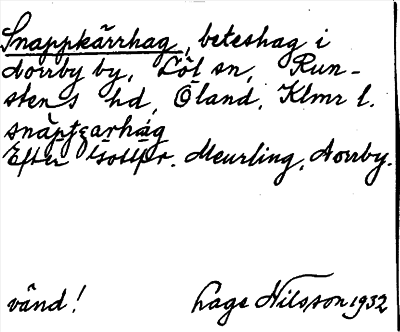 Snappkärrhag, beteshag i
Norrby by, Löt sn, Run-
stens hd, Öland, Klmr l.
Efter Gottfr. Meurling, Norrby.
vänd! Lage Nilsson 1932